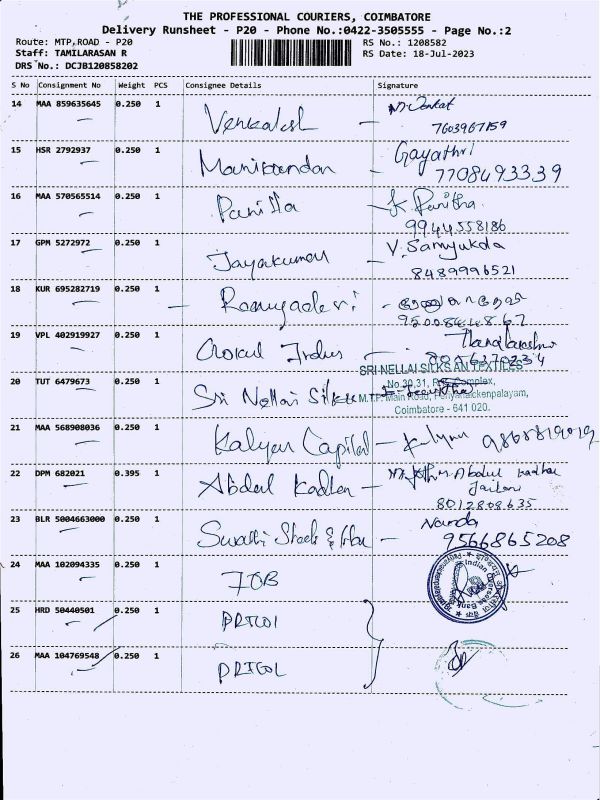 THE PROFESSIONAL COURIERS, COIMBATORE
Delivery Runsheet - P20 - Phone No.:0422-3505555 - Page No.:2
Route: MTP,ROAD - P20 RS No.: 1208582
Staff: TAMILARASAN R RS Date: 18-Jul-2023
DRS No.: DCJB120858202
S No Consignment No Weight PCS Consignee Details Signature
14 MAA 859635645 0.250 1 Venkatesh
7603967159
15 HSR 2792937 0.250 1 Manikandan - Gayathri
7708493339
16 MAA 570565514 0.250 1
9944558186
17 GPM 5272972 0.250 1 Jayakumar - V. Samyukda
8489996521
18 KUR 695282719 0.250 1
19 VPL 402919927 0.250 1
SRI NELLAI SILKS AN TEXTILES
20 TUT 6479673 0.250 1 Sri Nellai Silks
No.30,31,
M.T.P. Main Road, Periyanaickenpalayam,
Coimbatore - 641 020.
21 MAA 568908036 0.250 1 Kalyan Capital
22 DPM 682021 0.395 1 Abdul Kadher - Abdul
8012808635
23 BLR 5004663000 0.250 1 Nanda
9566865208
24 MAA 102094335 0.250 1 IOB
Indian Overseas Bank
25 HRD 50440501 0.250 1 PRICOL
26 MAA 104769548 0.250 1 PRICOL